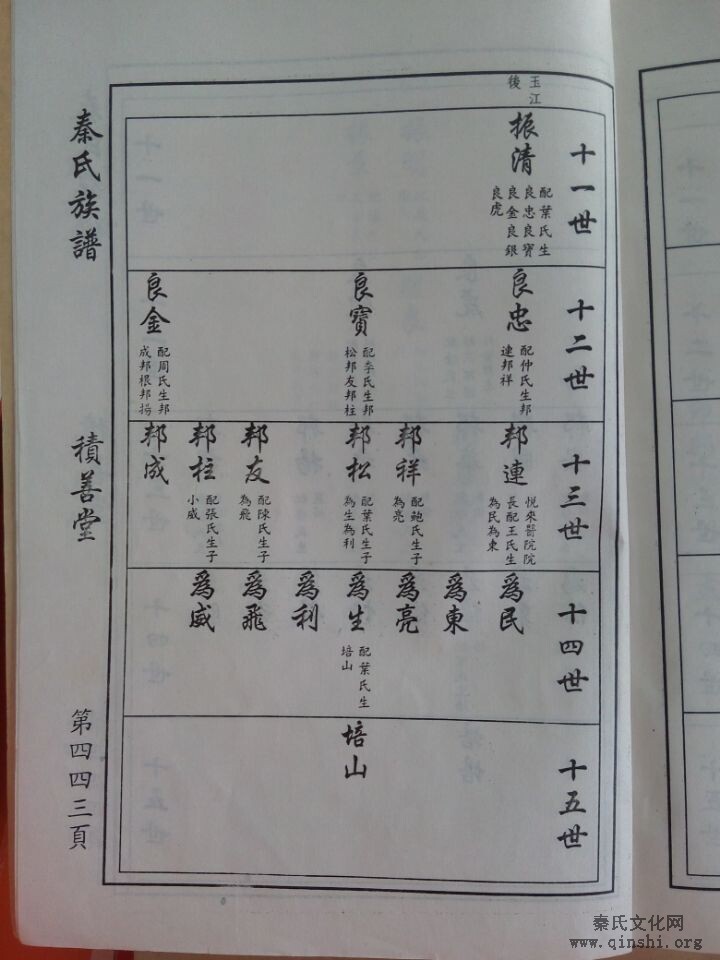 玉江
後
十一世
振清
配葉氏生
良忠良寶
良金良銀
良虎
十二世
良忠
配仲氏生邦
連邦祥
良寶
配李氏生邦
松邦友邦柱
良金
配周氏生邦
成邦根邦揚
十三世
邦連
悅來醫院院
長配王氏生
為民為東
邦祥
配鮑氏生子
為亮
邦松
配葉氏生子
為生為利
邦友
配陳氏生子
為飛
邦柱
配張氏生子
小威
邦成
十四世
為民
為東
為亮
為生
配葉氏生
培山
為利
為飛
為威
十五世
培山
秦氏族譜
積善堂
第四四三頁
秦氏文化网
www.qinshi.org